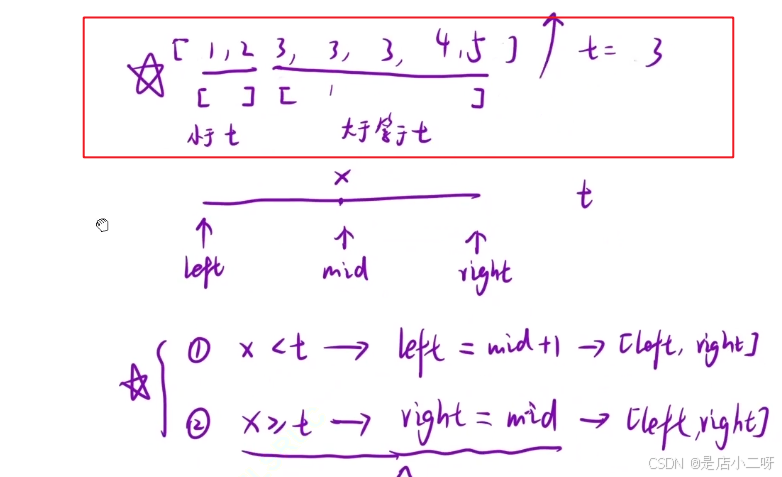 ☆ [ 1, 2 3, 3, 3, 4, 5 ] ↑ t = 3
[ ] [ ]
小于 t 大于等于 t
x t
↑ ↑ ↑
left mid right
☆ { ① x < t → left = mid+1 → [left, right]
② x ≥ t → right = mid → [left, right]
CSDN @是店小二呀